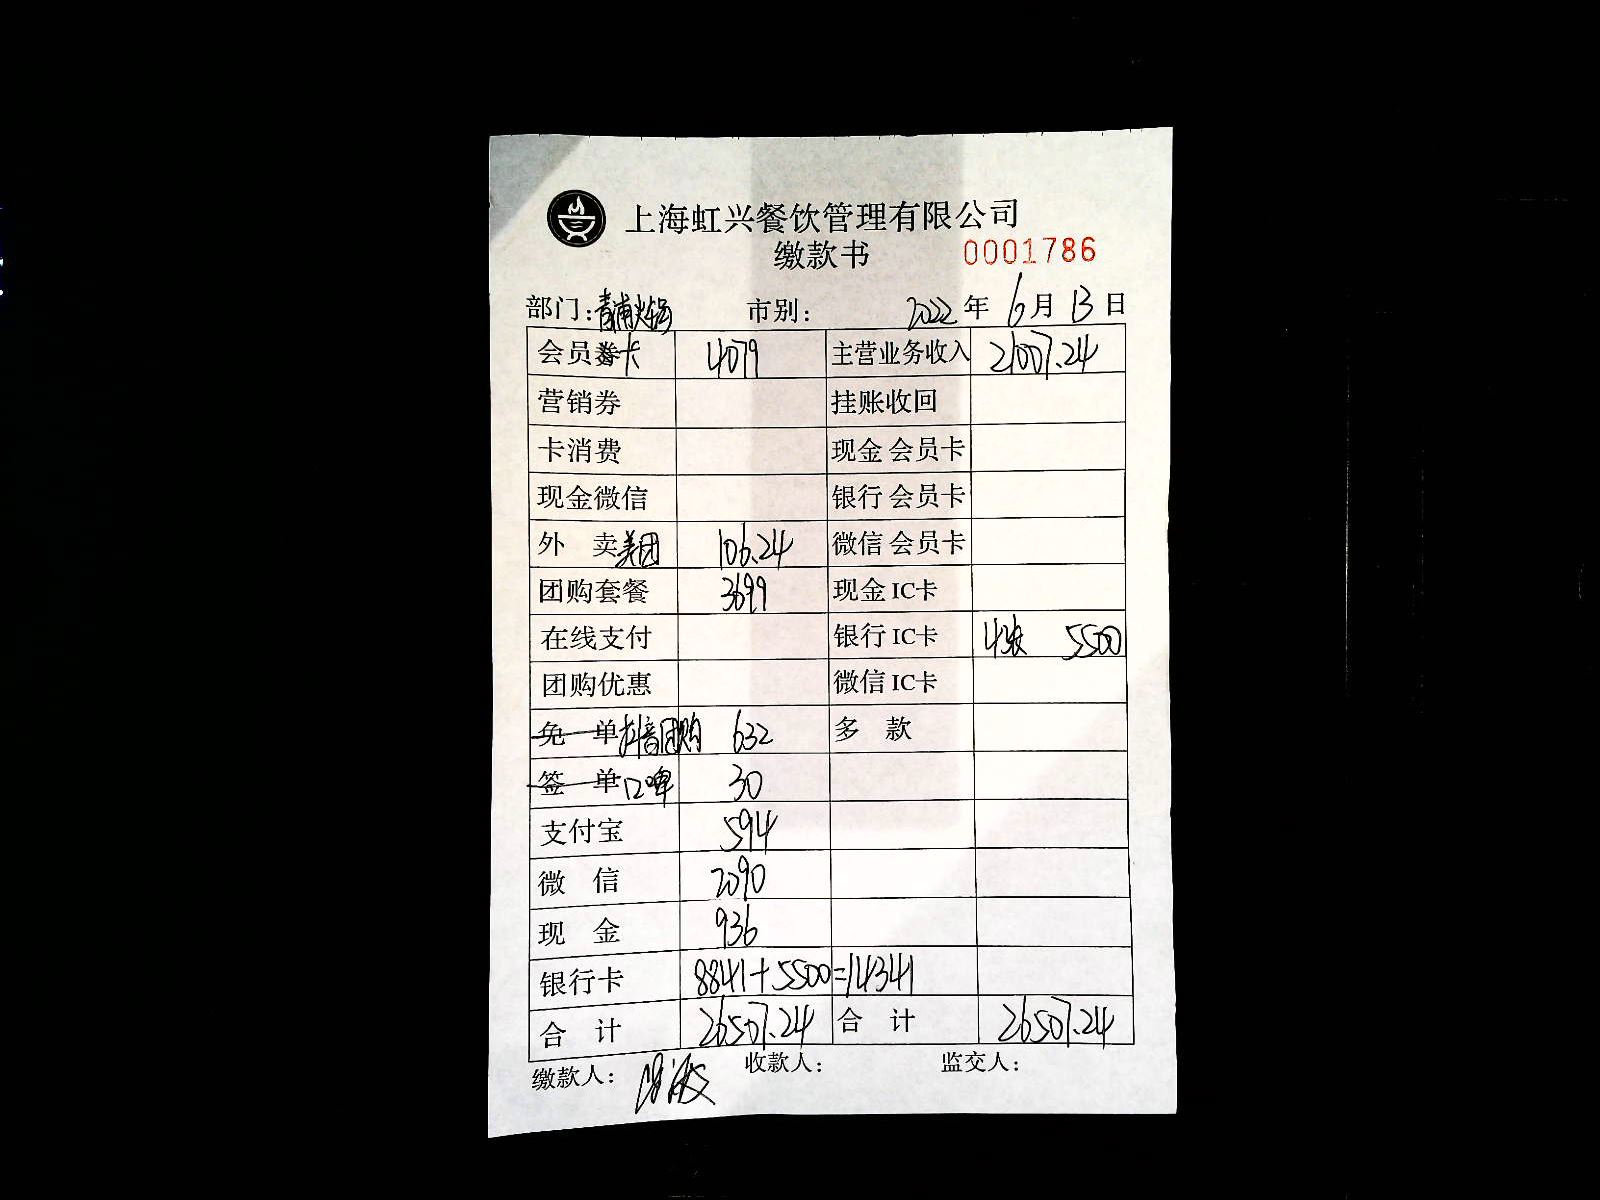 上海虹兴餐饮管理有限公司
缴款书 0001786
部门:青浦火锅 市别: 2022年6月13日
会员卡 4079 主营业务收入 21007.24
营销券 挂账收回
卡消费 现金 会员卡
现金微信 银行 会员卡
外 卖美团 106.24 微信 会员卡
团购套餐 3699 现金 IC卡
在线支付 银行 IC卡 4张 5500
团购优惠 微信 IC卡
免 单抖音团购 632 多 款
签 单口啤 30
支付宝 594
微 信 2090
现 金 936
银行卡 8841+5500=14341
合 计 26507.24 合 计 26507.24
缴款人: 收款人: 监交人: